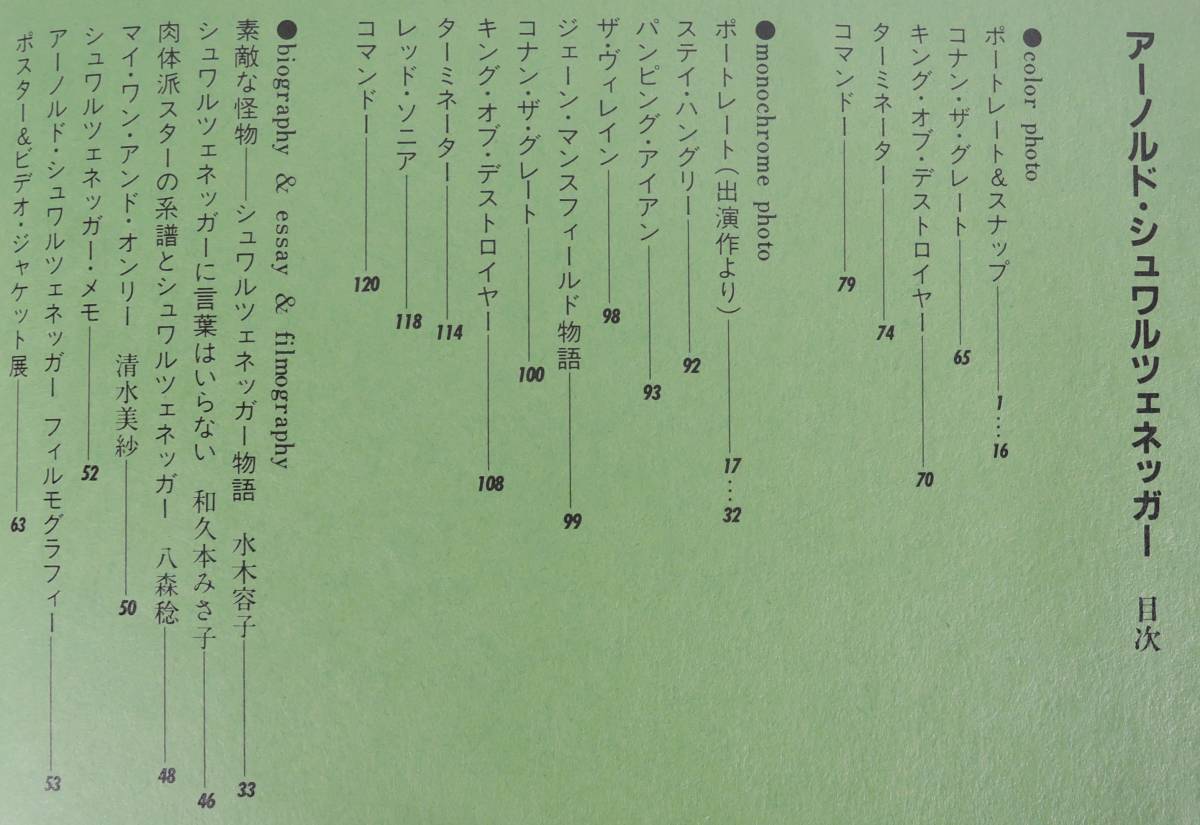 アーノルド・シュワルツェネッガー　目次
●color photo
ポートレート&スナップ――1…16
コナン・ザ・グレート――65
キング・オブ・デストロイヤー――70
ターミネーター――74
コマンドー――79
●monochrome photo
ポートレート(出演作より)――17…32
ステイ・ハングリー――92
パンピング・アイアン――93
ザ・ヴィレイン――98
ジェーン・マンスフィールド物語――99
コナン・ザ・グレート――100
キング・オブ・デストロイヤー――108
ターミネーター――114
レッド・ソニア――118
コマンドー――120
●biography & essay & filmography
素敵な怪物――シュワルツェネッガー物語　水木容子――33
シュワルツェネッガーに言葉はいらない　和久本みさ子――46
肉体派スターの系譜とシュワルツェネッガー　八森稔――48
マイ・ワン・アンド・オンリー　清水美紗――50
シュワルツェネッガー・メモ――52
アーノルド・シュワルツェネッガー　フィルモグラフィー――53
ポスター&ビデオ・ジャケット展――63